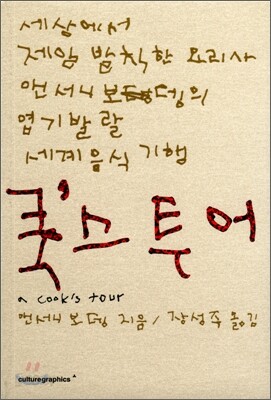 세상에서
제일 발칙한 요리사
앤서니 보뎅의
엽기발랄
세계음식 기행
쿡's 투어
a cook's tour
앤서니 보뎅 지음 / 장성주 옮김
culturegraphics